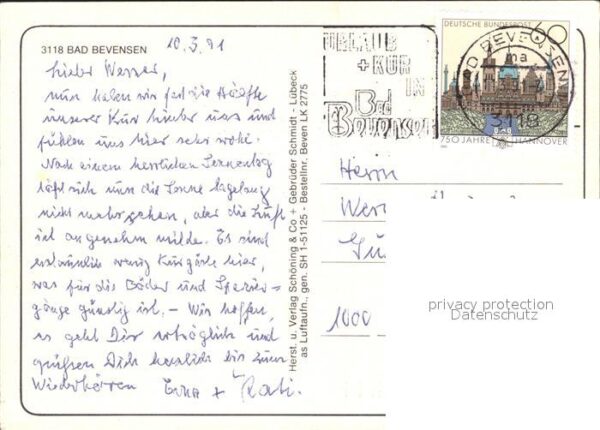 3118 BAD BEVENSEN
10.3.91
Lieber Werner,
nun haben wir fast die Hälfte
unserer Kur hinter uns und
fühlen uns hier sehr wohl.
Nach einem herrlichen Sonnentag
läßt sich nun die Sonne tagelang
nicht mehr sehen, aber die Luft
ist angenehm milde. Es sind
erstaunlich wenig Kurgäste hier,
was für die Bäder und Spazier-
gänge günstig ist. – Wir hoffen,
es geht Dir erträglich und
grüßen Dich herzlich bis zum
Wiederhören
Erna +
Herst. u. Verlag Schöning & Co + Gebrüder Schmidt - Lübeck
as Luftaufn., gen. SH 1-51125 - Bestellnr. Beven LK 2775
URLAUB
+ KUR
IN
Bad
Bevensen
DEUTSCHE BUNDESPOST
60
750 JAHRE HANNOVER
BAD BEVENSEN
ma
3118
Herrn
Wer
1000
privacy protection
Datenschutz